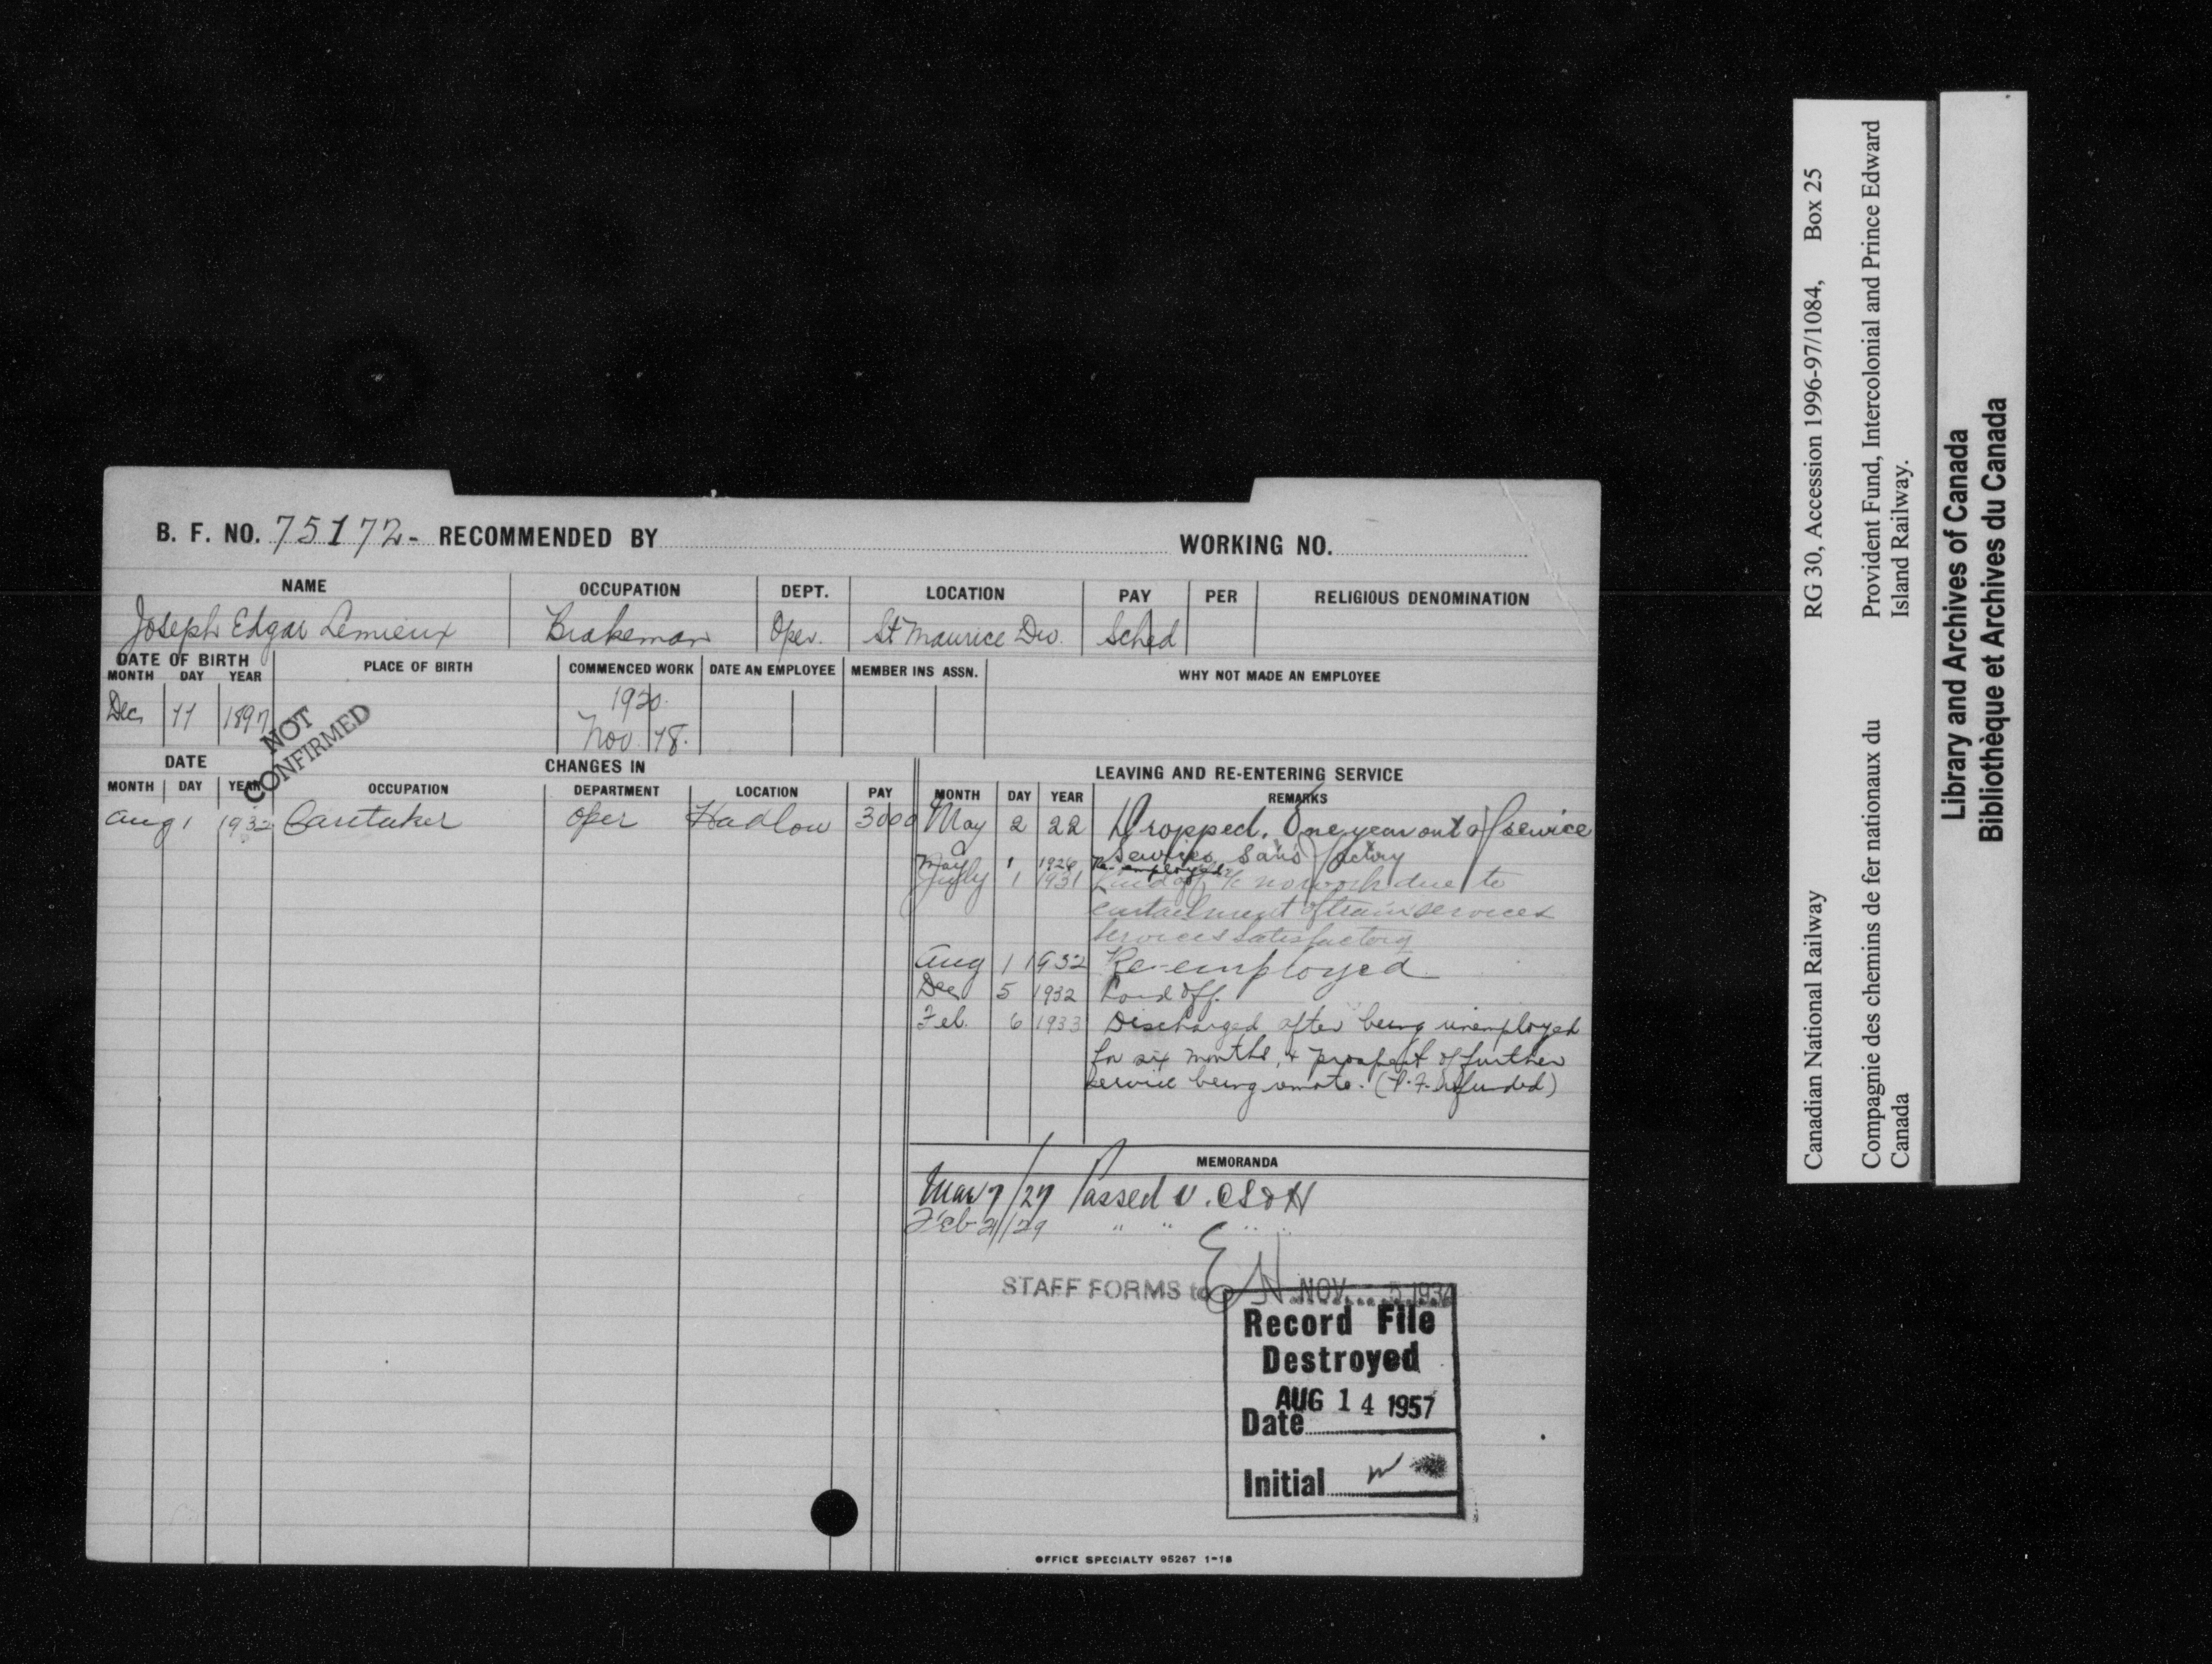 B. F. NO. 75172- RECOMMENDED BY WORKING NO.
NAME OCCUPATION DEPT. LOCATION PAY PER RELIGIOUS DENOMINATION
Joseph Edgar Lemieux Brakeman Oper. St Maurice Div. Sched
DATE OF BIRTH PLACE OF BIRTH COMMENCED WORK DATE AN EMPLOYEE MEMBER INS ASSN. WHY NOT MADE AN EMPLOYEE
MONTH DAY YEAR
1920.
Dec 11 1897
Nov. 18.
NOT
CONFIRMED
DATE CHANGES IN LEAVING AND RE-ENTERING SERVICE
MONTH DAY YEAR OCCUPATION DEPARTMENT LOCATION PAY MONTH DAY YEAR REMARKS
Aug 1 1932 Caretaker Oper Hadlow 3000 May 2 22 Dropped. One year out of service
Services Satisfactory
May 1 1926 Re-employed
July 1 1931 Laid off a/c no work due to
curtailment of train services
Services Satisfactory
Aug 1 1932 Re-employed
Dec 5 1932 Laid off.
Feb. 6 1933 Discharged after being unemployed
for six months, & prospect of further
service being remote. (P.F. refunded)
MEMORANDA
Mar 7/27 Passed V.CS&H
Feb 21/29 " " " "
STAFF FORMS to NOV 5 1934
Record File
Destroyed
AUG 14 1957
Date
Initial
OFFICE SPECIALTY 95267 1-18
Canadian National Railway RG 30, Accession 1996-97/1084, Box 25
Compagnie des chemins de fer nationaux du Provident Fund, Intercolonial and Prince Edward
Canada Island Railway.
Library and Archives of Canada
Bibliothèque et Archives du Canada